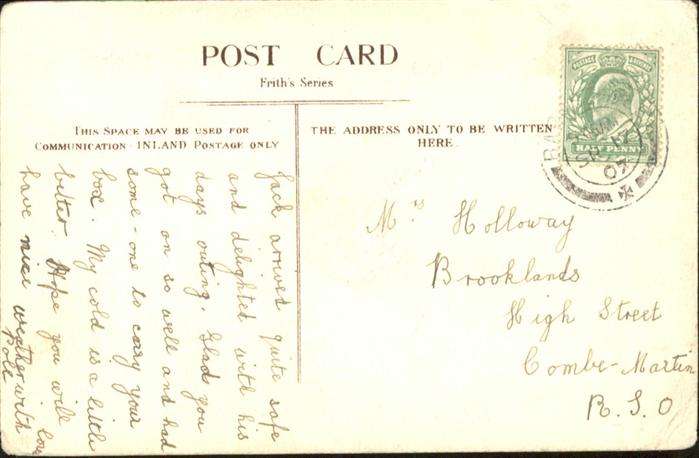 POST CARD
Frith's Series
THIS SPACE MAY BE USED FOR
COMMUNICATION INLAND POSTAGE ONLY
THE ADDRESS ONLY TO BE WRITTEN
HERE
Jack arrived quite safe
and delighted with his
days outing. Glad you
got on so well and had
some-one to carry your
box. My cold is a little
better. Hope you will
have nice weather with love
Poll
Mrs Holloway
Brooklands
High Street
Combe-Martin
R.S.O
POSTAGE
HALF PENNY
07